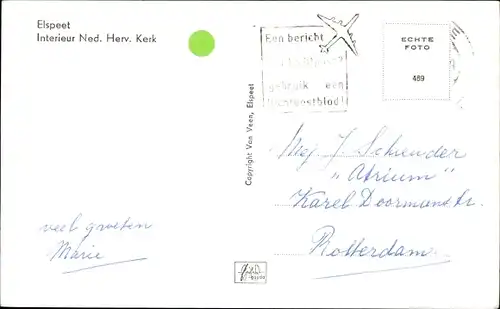 Elspeet
Interieur Ned. Herv. Kerk
Een bericht
gebruik een
ECHTE
FOTO
489
Copyright Van Veen, Elspeet
Mej. J. Schreuder
"Atrium"
Karel Doormanstr.
Rotterdam
veel groeten
Marie